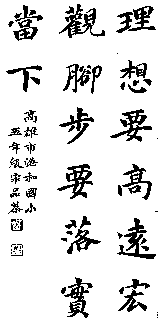 理想要高遠宏
觀腳步要落實
當下
高雄市港和國小
五年級